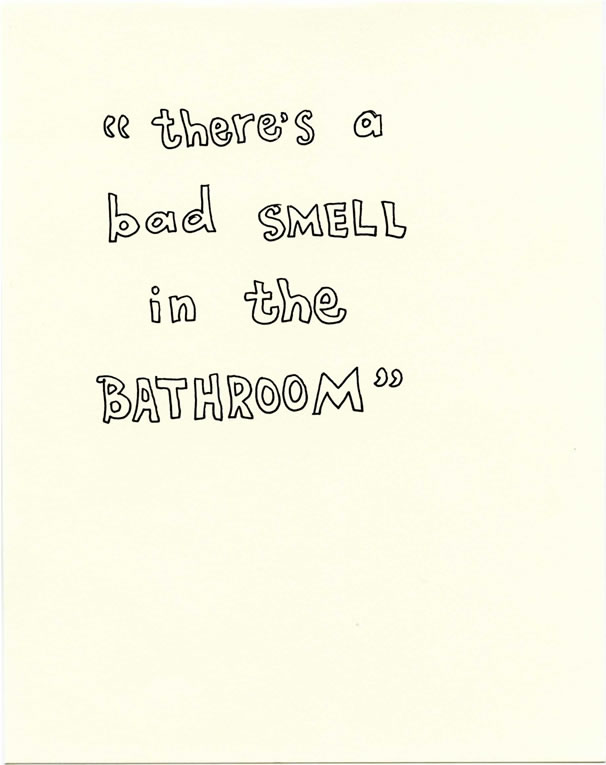 “there's a
bad SMELL
in the
BATHROOM”